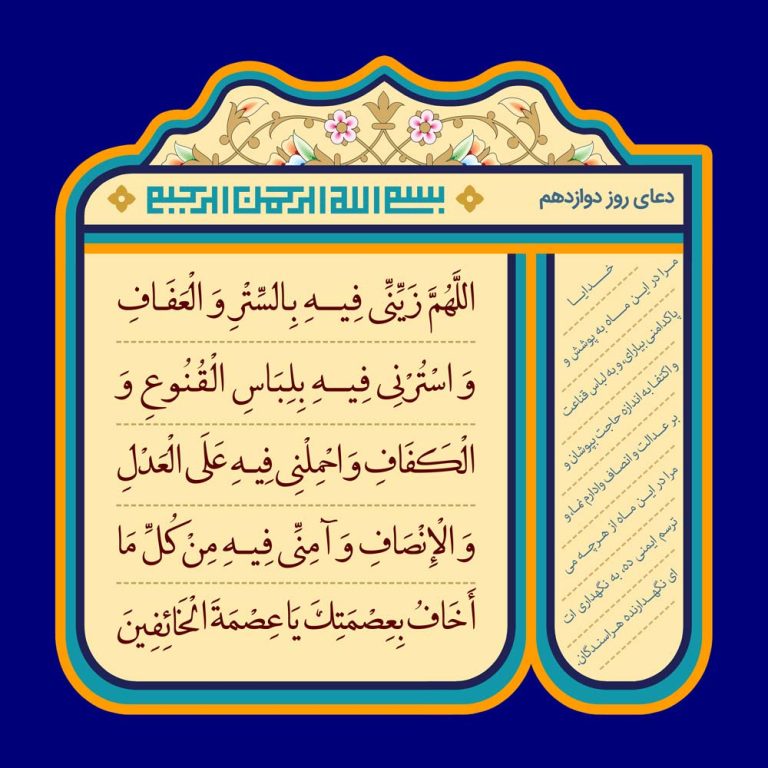 دعای روز دوازدهم
بسم الله الرحمن الرحیم
اللَّهُمَّ زَيِّنِّی فِیـهِ بِالسِّتْرِ وَ الْعَفَـافِ
وَ اسْتُرْنِی فِیـهِ بِلِبَاسِ الْقُنُوعِ وَ
الْكَفَافِ وَ احْمِلْنِی فِیهِ عَلَى الْعَدْلِ
وَ الْإِنْصَافِ وَ آمِنِّی فِیـهِ مِنْ كُلِّ مَا
أَخَافُ بِعِصْمَتِكَ يَا عِصْمَةَ الْخَائِفِينَ
خـدایـا
مـرا در ایـن مـاه به پوشش و
پاکدامنی بیارای، و به لباس قناعت
و اکتفـا به اندازه حاجت بپوشان و
بر عـدالت و انصـاف وادارم نما، و
مرا در ایـن مـاه از هـرچـه می
ترسم ایمنی ده، به نگهداری ات
ای نگهـدارنده هـراسنـدگان.